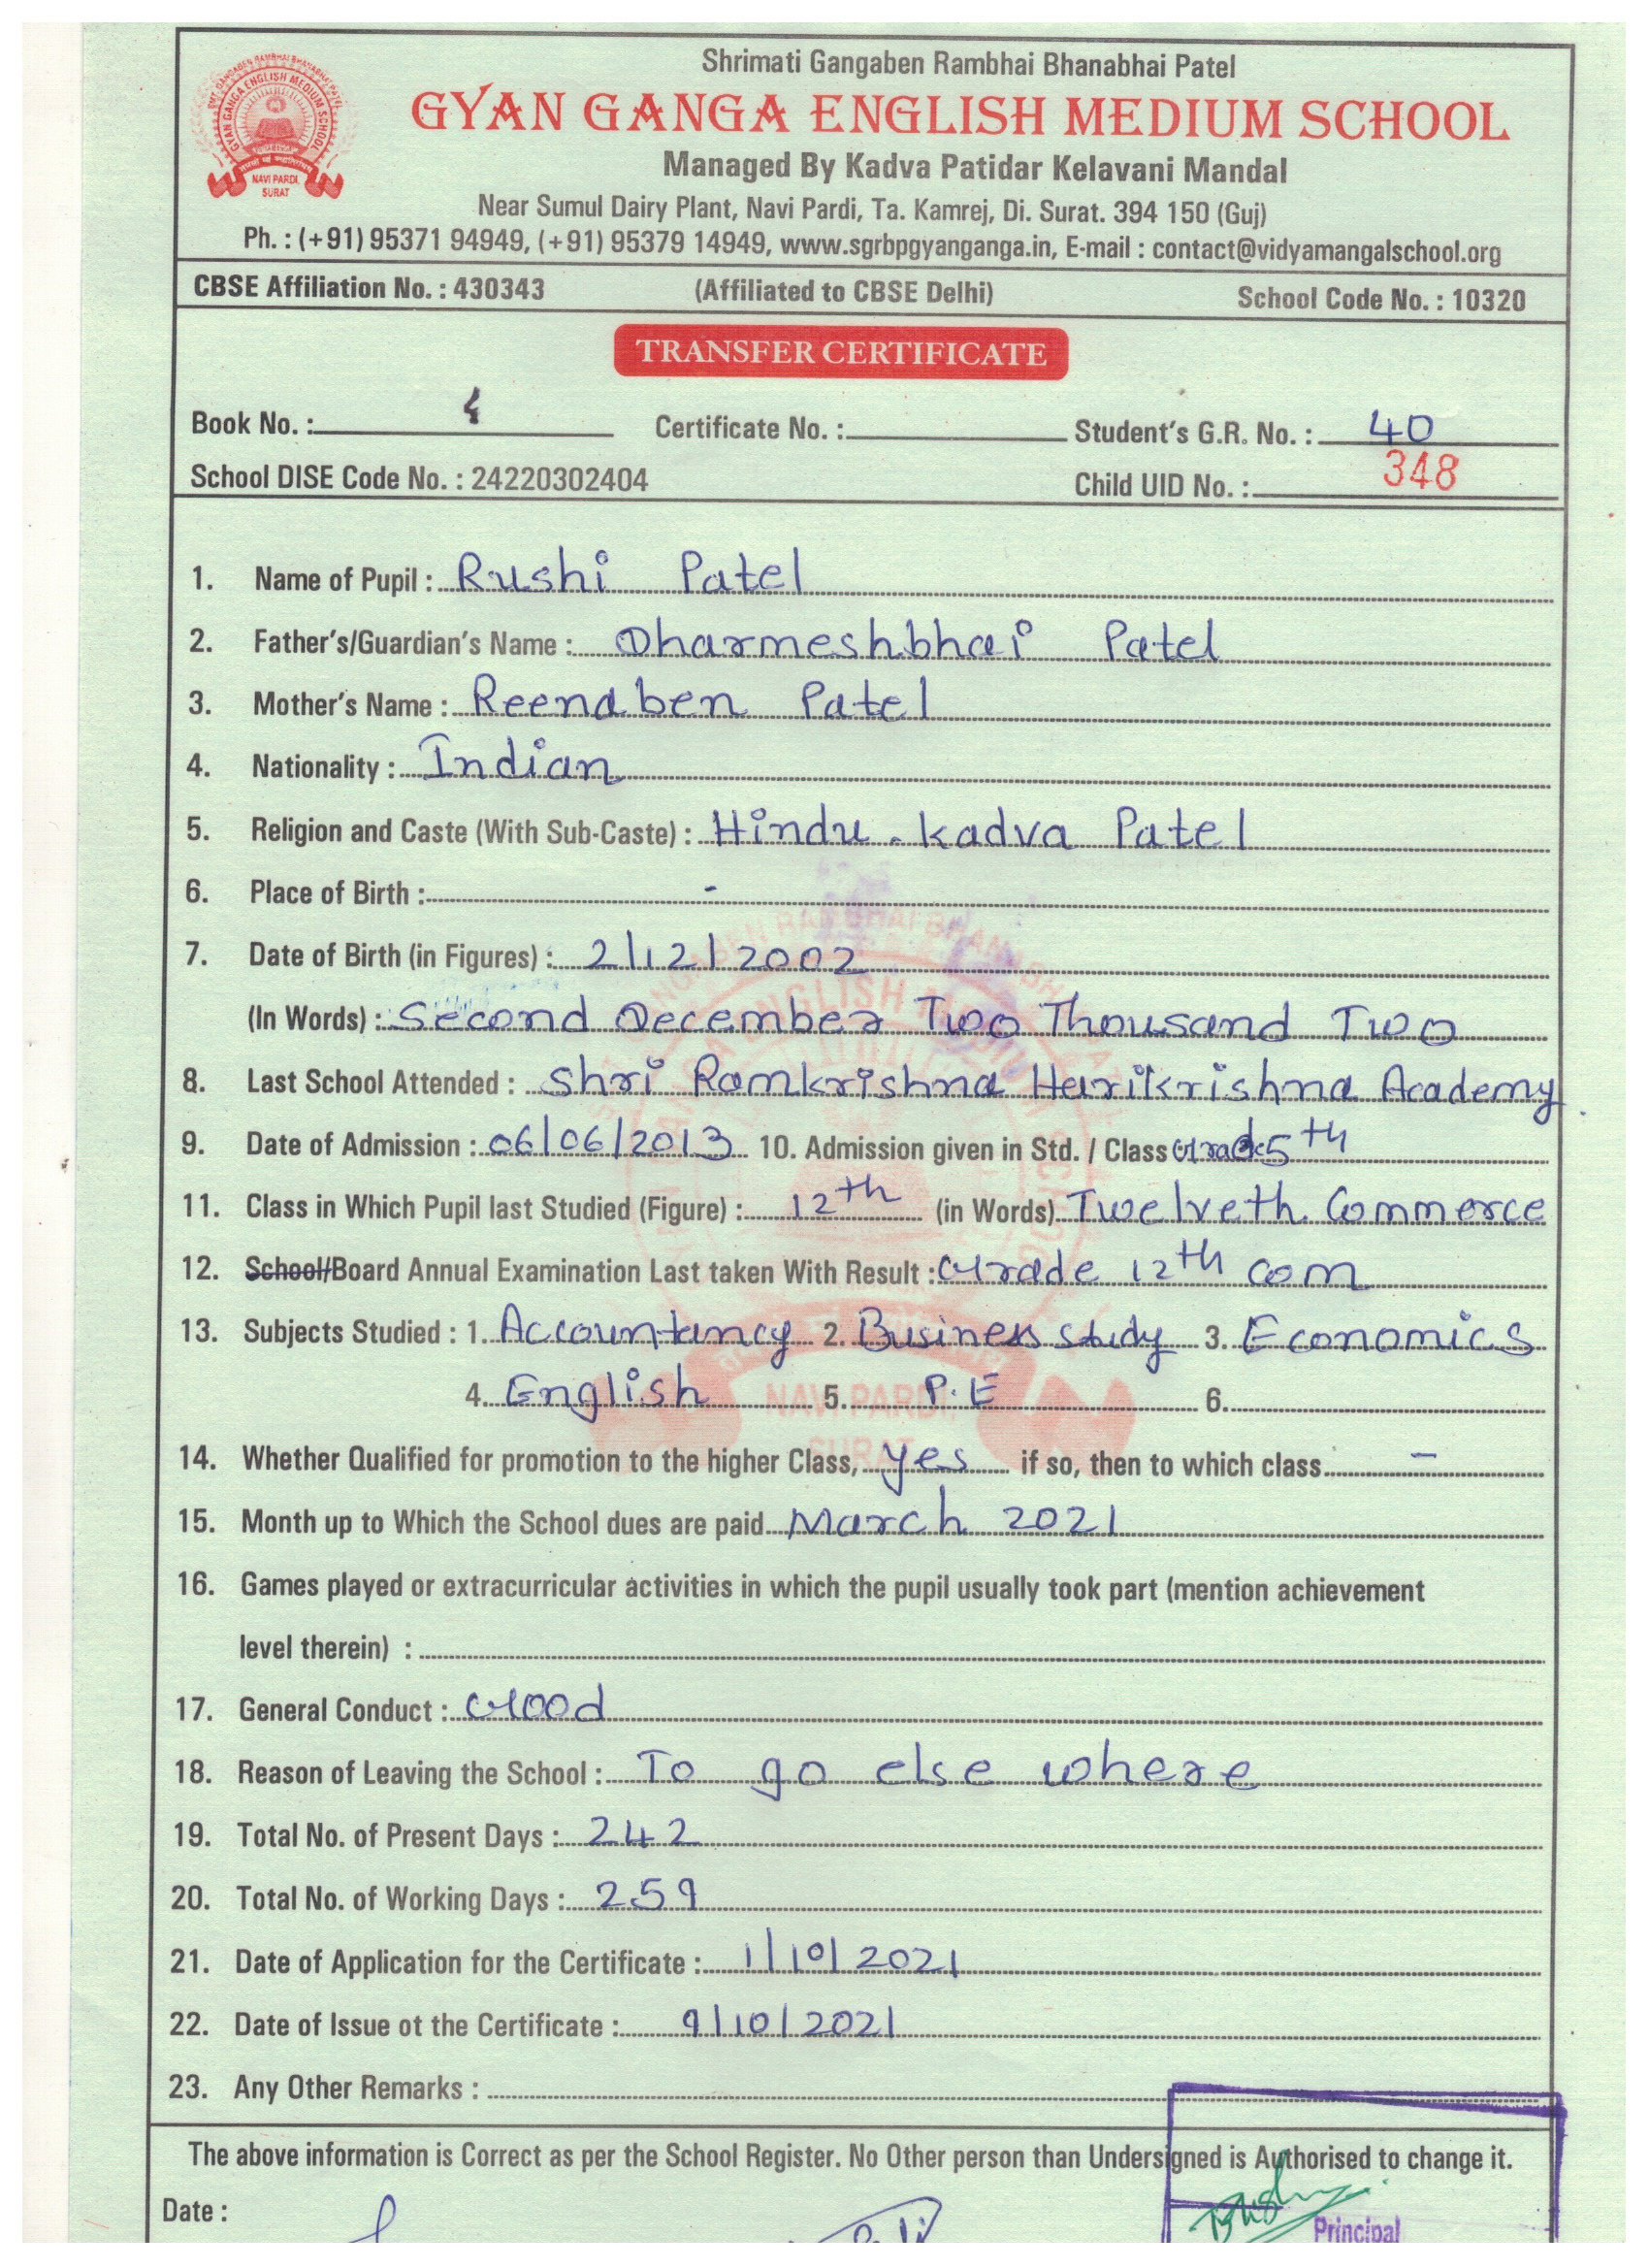 Shrimati Gangaben Rambhai Bhanabhai Patel
GYAN GANGA ENGLISH MEDIUM SCHOOL
Managed By Kadva Patidar Kelavani Mandal
Near Sumul Dairy Plant, Navi Pardi, Ta. Kamrej, Di. Surat. 394 150 (Guj)
Ph. : (+91) 95371 94949, (+91) 95379 14949, www.sgrbpgyanganga.in, E-mail : contact@vidyamangalschool.org
GYAN GANGA ENGLISH MEDIUM SCHOOL
NAVI PARDI,
SURAT
CBSE Affiliation No. : 430343 (Affiliated to CBSE Delhi) School Code No. : 10320
TRANSFER CERTIFICATE
Book No. : 4 Certificate No. : Student's G.R. No. : 40
School DISE Code No. : 24220302404 Child UID No. : 348
1. Name of Pupil : Rushi Patel
2. Father's/Guardian's Name : Dharmeshbhai Patel
3. Mother's Name : Reenaben Patel
4. Nationality : Indian
5. Religion and Caste (With Sub-Caste) : Hindu - Kadva Patel
6. Place of Birth : -
7. Date of Birth (in Figures) : 2/12/2002
(In Words) : Second December Two Thousand Two
8. Last School Attended : Shri Ramkrishna Harikrishna Academy
9. Date of Admission : 06/06/2013 10. Admission given in Std. / Class Grade 5th
11. Class in Which Pupil last Studied (Figure) : 12th (in Words) Twelveth Commerce
12. School/Board Annual Examination Last taken With Result : Grade 12th com
13. Subjects Studied : 1. Accountancy 2. Business study 3. Economics
4. English 5. P.E 6.
14. Whether Qualified for promotion to the higher Class, yes if so, then to which class -
15. Month up to Which the School dues are paid March 2021
16. Games played or extracurricular activities in which the pupil usually took part (mention achievement
level therein) :
17. General Conduct : Good
18. Reason of Leaving the School : To go else where
19. Total No. of Present Days : 242
20. Total No. of Working Days : 259
21. Date of Application for the Certificate : 1/10/2021
22. Date of Issue ot the Certificate : 9/10/2021
23. Any Other Remarks :
The above information is Correct as per the School Register. No Other person than Undersigned is Authorised to change it.
Date :
Principal